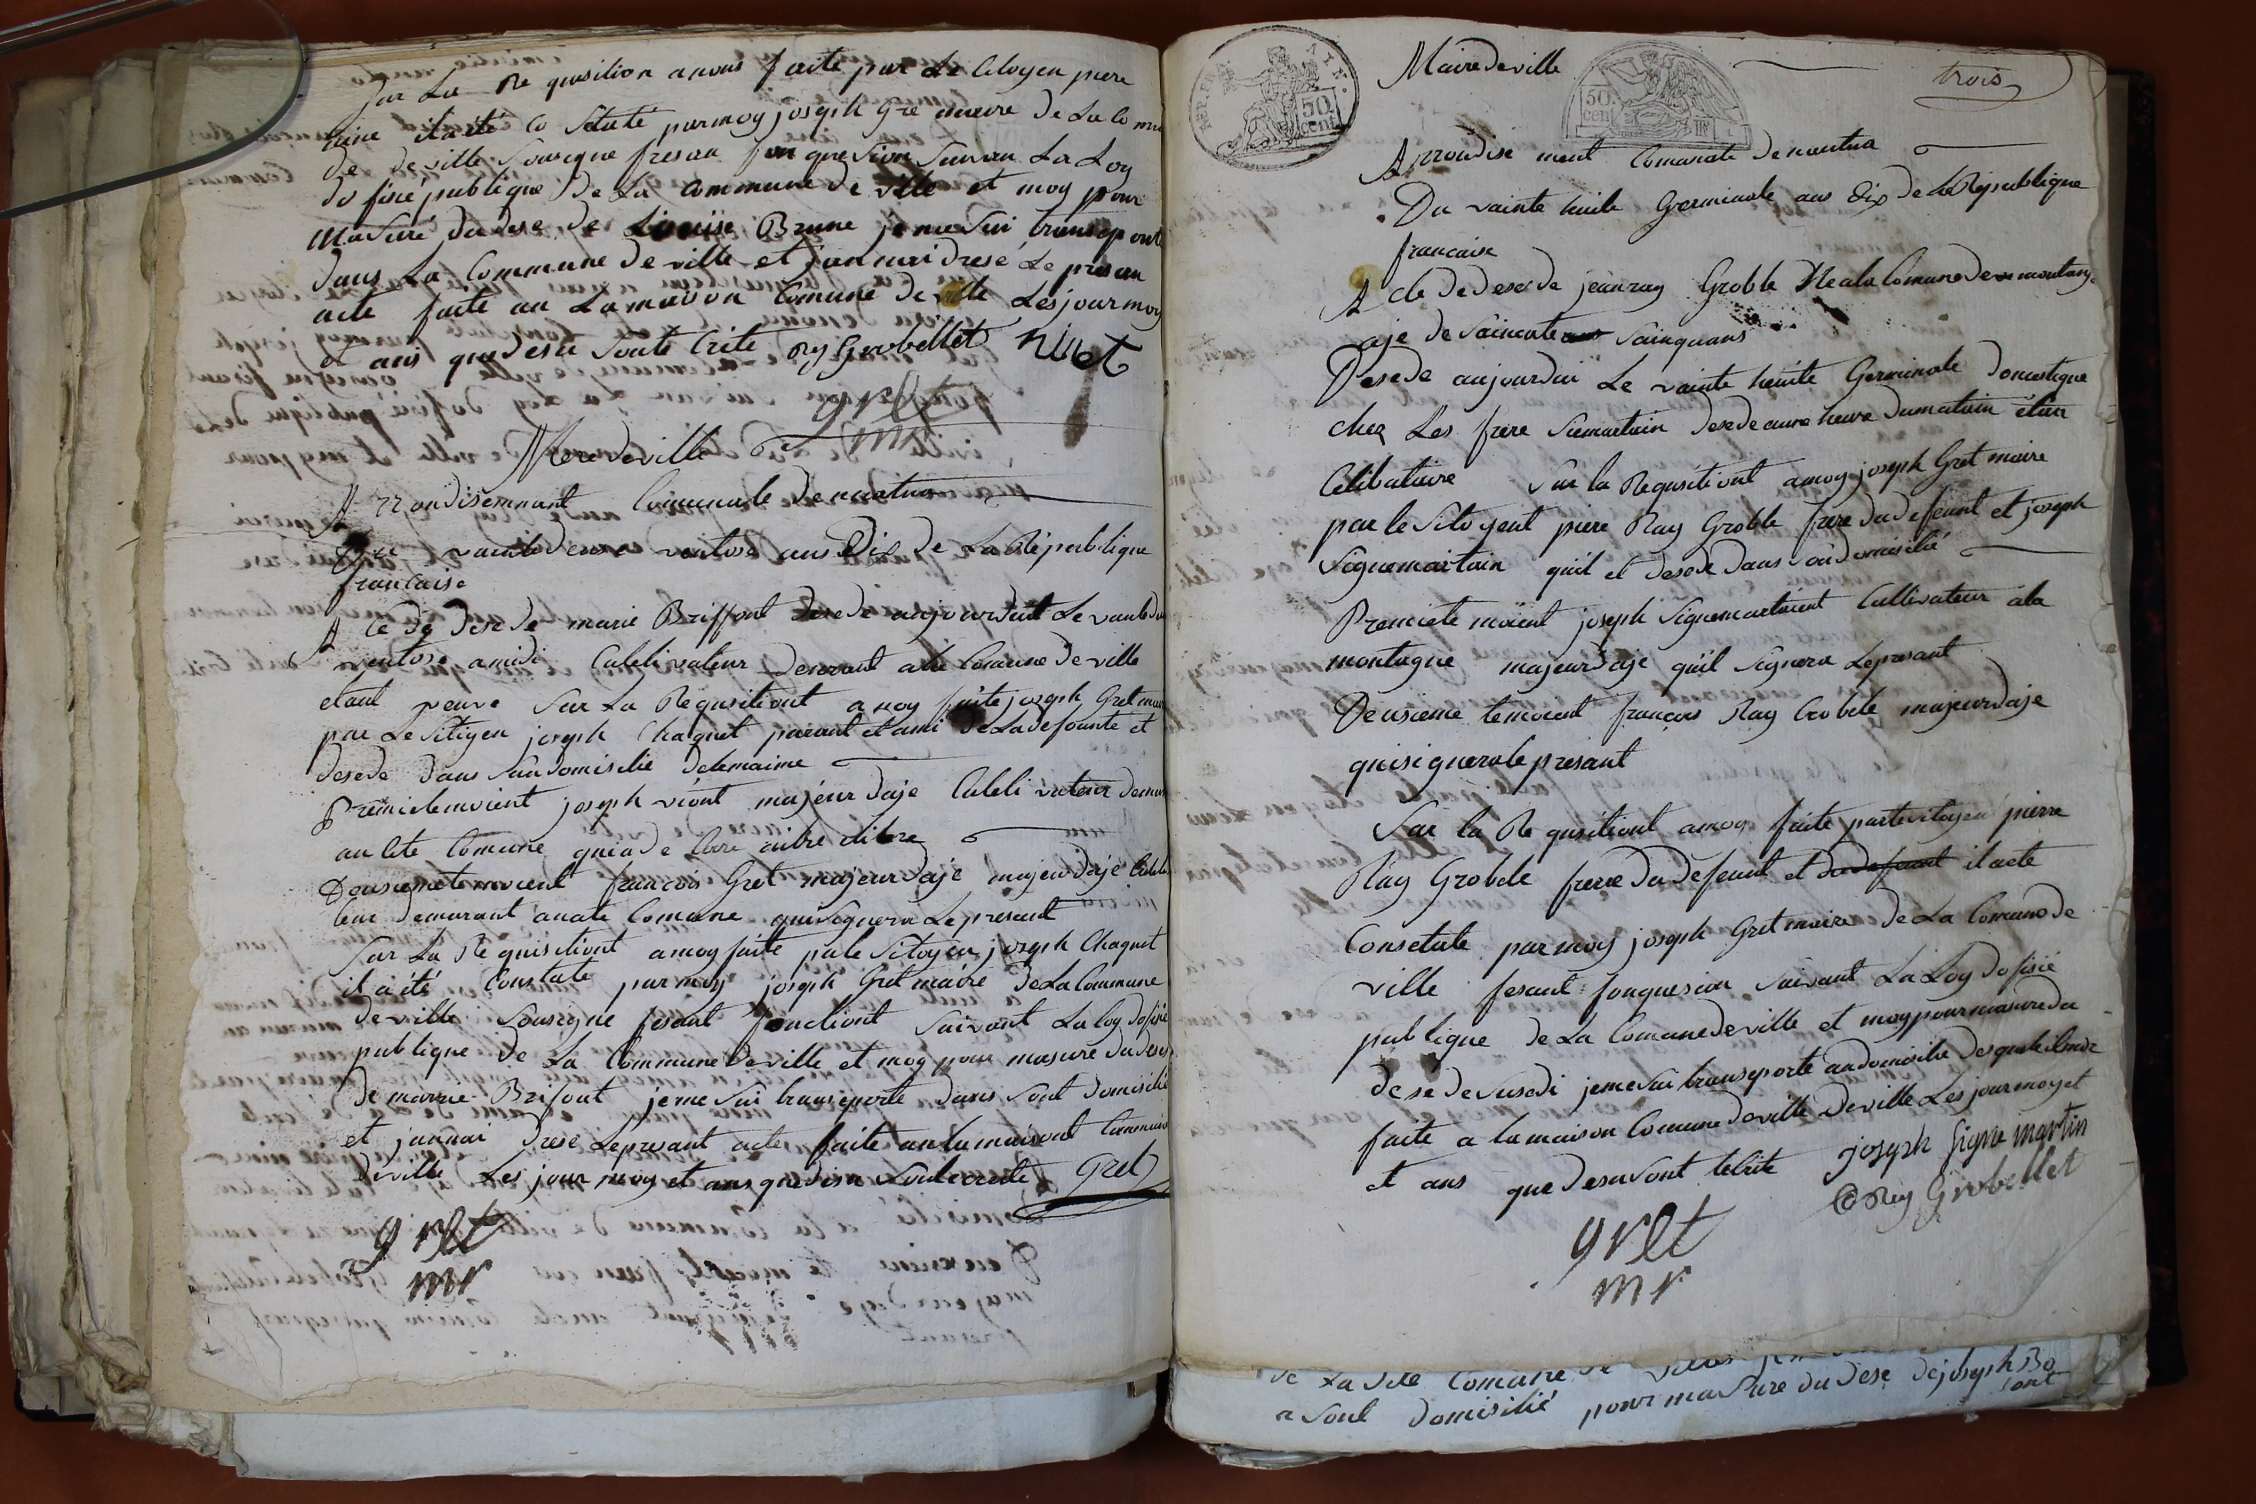 Sur La Re quisition a nous faite par Le Citoyen piere
nine il a été Co State par moy joseph gre maire de La Comu
de de ville Sousigne fresan fon quesion Suivan La Loy
do fisié publique de La Commune de ville et moy pour
m'a Suré du dese de Louise Brune je me Sui transeporte
dans La Commune de ville et j'an nai drese Le presan
acte faite an La maison Comune de ville Les jour moy
et ans que desu Soute Crite Rey Grobellet nuet
gret
mr
Mere de ville
A rrondisemnant Comunale de nantua
Du vainte deuse ventose ans Dix de La Republique
francaise
A Cte de dese de marie Briffout desede aujourduit Le vante deu
ventose a midi Culelivateur demrant a la Comune de ville
etant veuve Sur La Requsitiont a moy faite joseph Gret maire
par Le Sitoyen joseph Chaquet parant et ami de La defounte et
desede dans Sau domisilie delemaime
Premie temoient joseph viont majeur d'aje Culeli vateur demeu
au lite Comune qui a de Clare aitre illitre
Deusieme temoient francois Gret majeur d'aje majeur d'aje Culeli
teur demurant a cate Comune qui Signera Le present
Sur La Re quisitiont a moy faite pa le Sitoyen joseph Chaquet
il a été Constate par moy joseph Gret maire de La Commune
de ville Sousigne fesant fonctiont Suivant La loy dofisié
publique de La Commune de ville et moy pour m'asure du dese
de marie Brifout je me Sui transeporte dans Sont domisilié
et j'annai drese Le presant acte faite an la maisont Commune
de ville Les jour moy et ans que desu Soute crite Gret
gret
mr
Maire de ville
trois
50 cent
50 cent
A rrondise ment Comunale de nantua
Du vainte huite Germinale ans Dix de La Republique
francaise
A Cte de desede jean ray Groble Ne a la Comune de montange
aje de Saincante Sainquans
Desede aujourdui Le vainte heuite Germinale domestique
cheq Les frere Sinemartain desede a une heure du matain étan
Célibataire Sur la Requisitiont a moy joseph Gret maire
par le Sitoyent piere Ray Groble frere du defeunt et joseph
Signemartain quil et desede dans Son domisilié
Premie te moient joseph Signemartaient Cultivateur a la
montagne majeur d'aje qu'il Signera Le presant
Deusieme temoient françois Ray Grobele majeur d'aje
qui signera le presant
Sur la Re qusitiont a moy faite par te sitoyen pierre
Ray Grobele frere du defeunt et du defeunt il a ete
Consetate par moy joseph Gret maire de La Comune de
ville fesant fonquesion Suivant La Loy dofisié
publique de La Comune de ville et moy pour masure du
de se de susedi je me Sui transeporte an domisilie desquele
faite a la maison Comune de ville de ville Les jour moy et
et ans que desu Sont te Crite joseph Signe martin
Rey Grobellet
gret
mr
de La dite Comune de
a Sont domisilié pour ma Sure du dese de joseph Bo